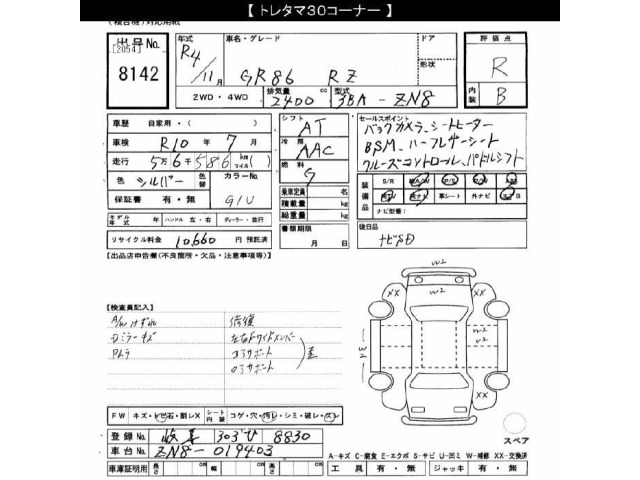 【 トレタマ30コーナー 】
(複合機)対応用紙
出品No.
[2054]
8142
年式 車名・グレード ドア
R4/11月 GR86 RZ 形状
2WD・4WD 排気量 2400 cc 型式 3BA-ZN8
評価点
R
内装 B
車歴 自家用・( )
車検 R10 年 7 月
走行 5万6千586 km マイル( )
色 シルバー 色替 カラーNo.
保証書 有・無 G1U
モデル年式 年 ハンドル 左・右 ディーラー・並行
リサイクル料金 10,660 円 預託済
シフト AT
冷房 AAC
燃料 G
乗車定員 名
積載量 kg
総重量 kg
書類期限
月 日
セールスポイント
バックカメラ、シートヒーター
BSM、ハーフレザーシート
クルーズコントロール、パドルシフト
装備品 S/R A/W P/S P/W
革シート 外ナビ
ナビ型番:
後日品
ナビSD
[出品店申告欄(不良箇所・欠品・注意事項等)]
[検査員記入]
A/W ケズレ
Dミラーキズ
修復
左右Fサイドメンバー
コアサポート
ロアサポート
差
W2
W2
XX
XX
W3
XX
XX
FW キズ・トビ石・割レX シート内装 コゲ・穴・汚レ・シミ・破レ・スレ
登録No. 岐阜 303 ひ 8830
車台No. ZN8-019403
車庫証明用 長さ cm 幅 cm 高さ cm
スペア
A-キズ C-腐食 E-エクボ S-サビ U-凹ミ W-補修 XX-交換済
工具 有・無 ジャッキ 有・無